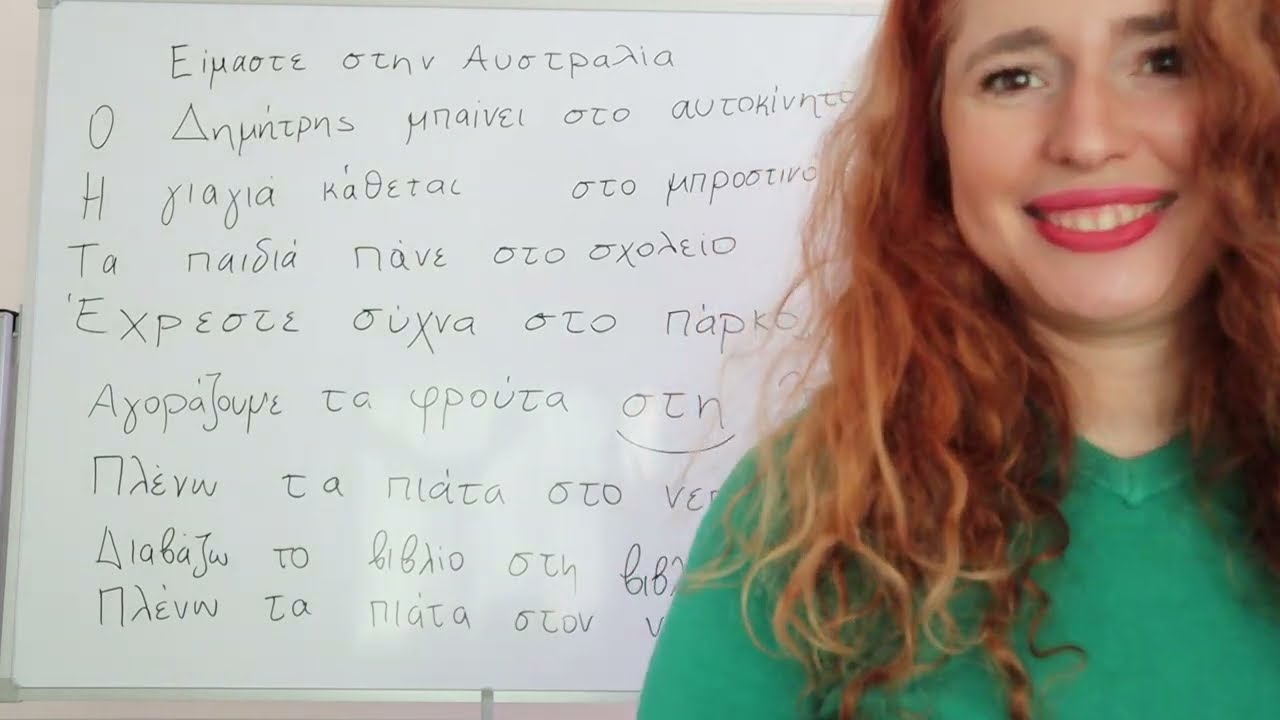 Είμαστε στην Αυστραλία
Ο Δημήτρης μπαίνει στο αυτοκίνητο
Η γιαγιά κάθεται στο μπροστινό
Τα παιδιά πάνε στο σχολείο
Έχρεστε σύχνα στο πάρκο
Αγοράζουμε τα φρούτα στη
Πλένω τα πιάτα στο
Διαβάζω το βιβλίο στη
Πλένω τα πιάτα στον